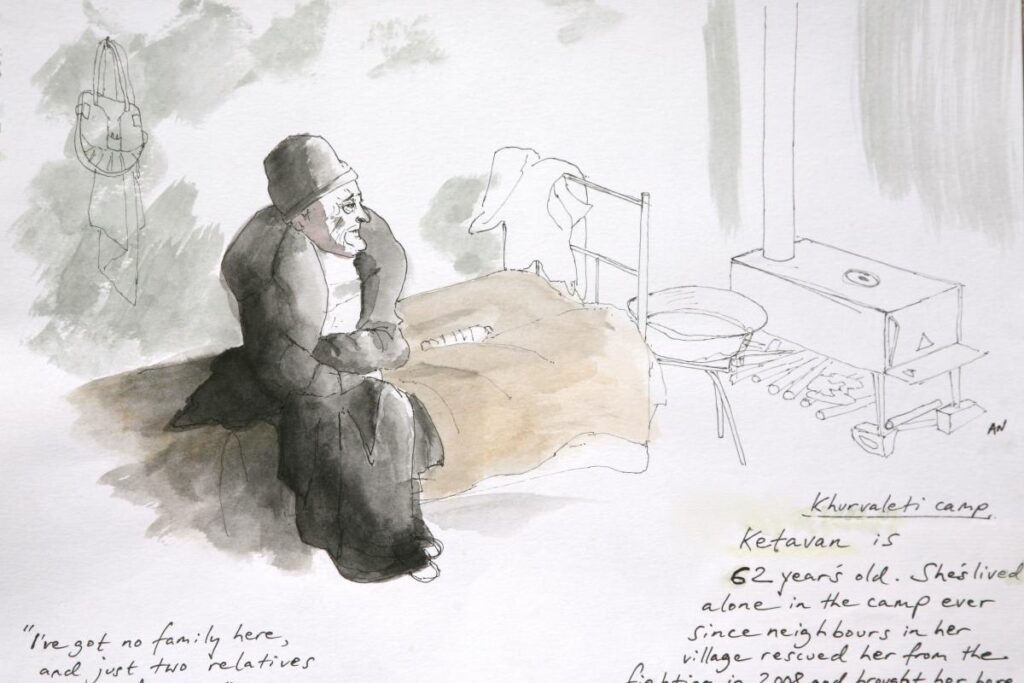 AN
Khurvaleti camp
Ketavan is
62 year's old. She's lived
alone in the camp ever
since neighbours in her
village rescued her from the
fighting in 2008 and brought her here
"I've got no family here,
and just two relatives